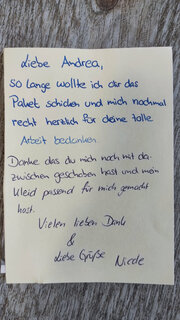 Liebe Andrea,
so lange wollte ich dir das
Paket schicken und mich nochmal
recht herzlich für deine tolle
Arbeit bedanken.
Danke das du mich noch mit da-
zwischen geschoben hast und mein
Kleid passend für mich gemacht
hast.
Vielen lieben Dank
&
Liebe Grüße
Nicole